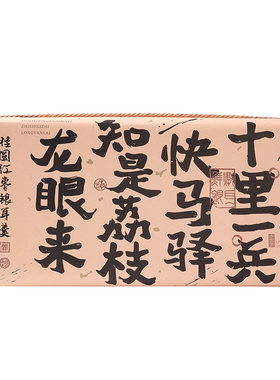 十里一兵
快马驿
知是荔枝
龙眼来
桂圆红枣银耳羹
ZHISHILIZHI
LONGYANLAI